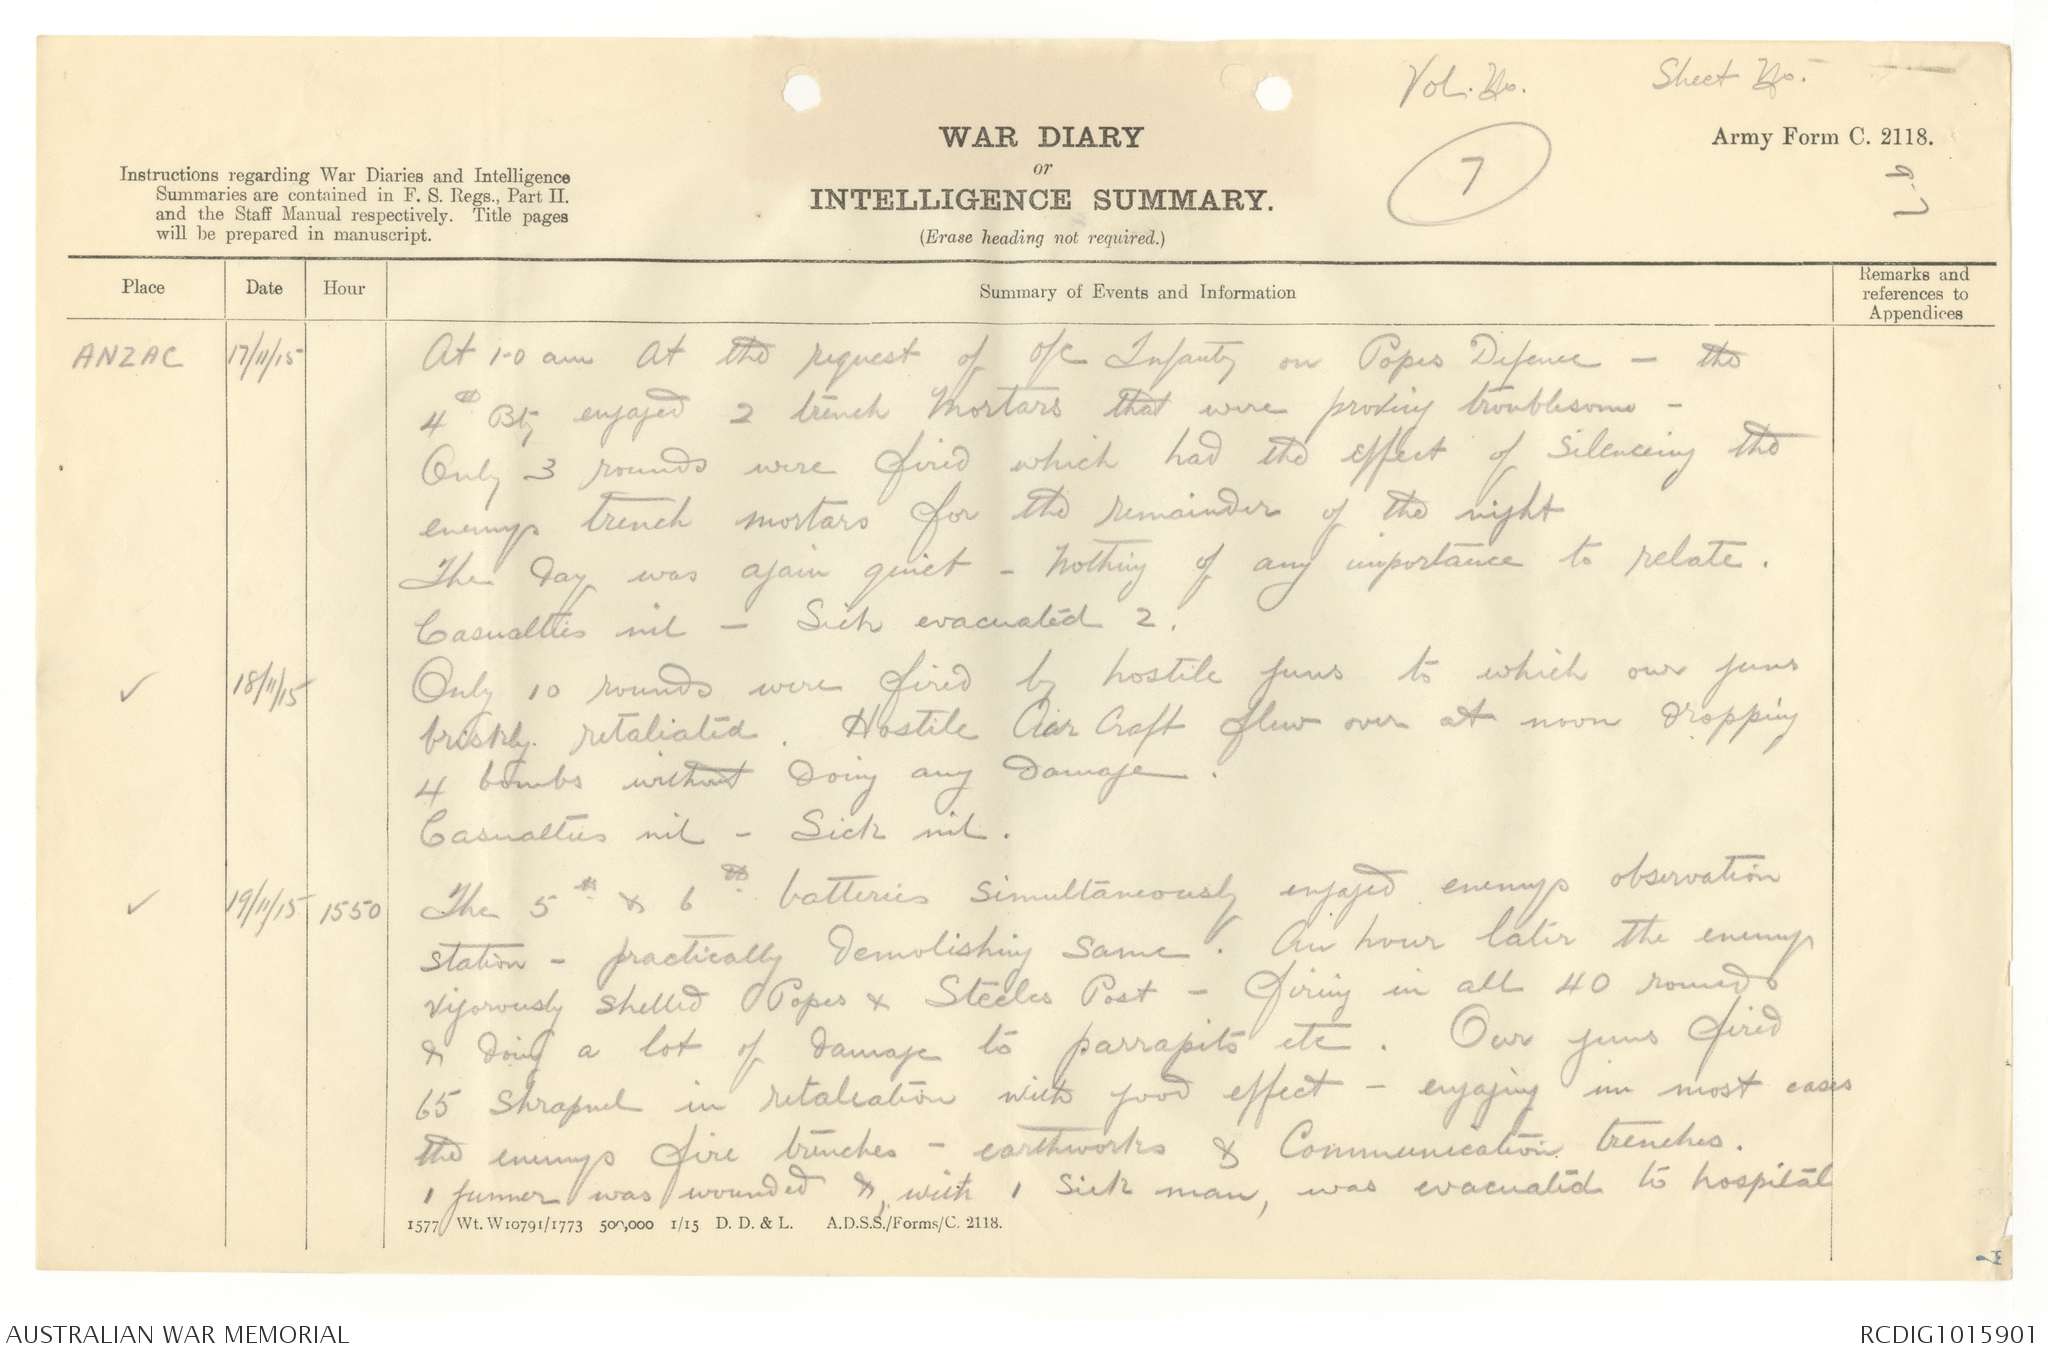 Vol. No. Sheet No.
WAR DIARY
or
INTELLIGENCE SUMMARY.
(Erase heading not required.)
7
Army Form C. 2118.
Instructions regarding War Diaries and Intelligence
Summaries are contained in F. S. Regs., Part II.
and the Staff Manual respectively. Title pages
will be prepared in manuscript.
Place Date Hour Summary of Events and Information Remarks and references to Appendices
ANZAC 17/11/15 At 1-0 am At the request of O/C Infanty on Popes Defence – the
4th Bty engaged 2 trench Mortars that were proving troublesome –
Only 3 rounds were fired which had the effect of silenceing the
enemys trench mortars for the remainder of the night
The day was again quiet – Nothing of any importance to relate.
Casualties nil – Sick evacuated 2.
✓ 18/11/15 Only 10 rounds were fired by hostile guns to which our guns
briskly retaliated. Hostile Air Craft flew over at noon dropping
4 bombs without doing any damage.
Casualties nil – Sick nil.
✓ 19/11/15 1550 The 5th & 6th batteries simultaneously engaged enemys observation
station – practically demolishing same. An hour later the enemy
vigorously shelled Popes & Steeles Post – firing in all 40 rounds
& doing a lot of damage to parrapits etc. Our guns fired
65 shrapnel in retaliation with good effect – engaging in most cases
the enemys fire trenches – earthworks & Communication trenches.
1 gunner was wounded &, with 1 sick man, was evacuated to hospital
1577 Wt. W10791/1773 500,000 1/15 D. D. & L. A.D.S.S./Forms/C. 2118.
AUSTRALIAN WAR MEMORIAL
RCDIG1015901